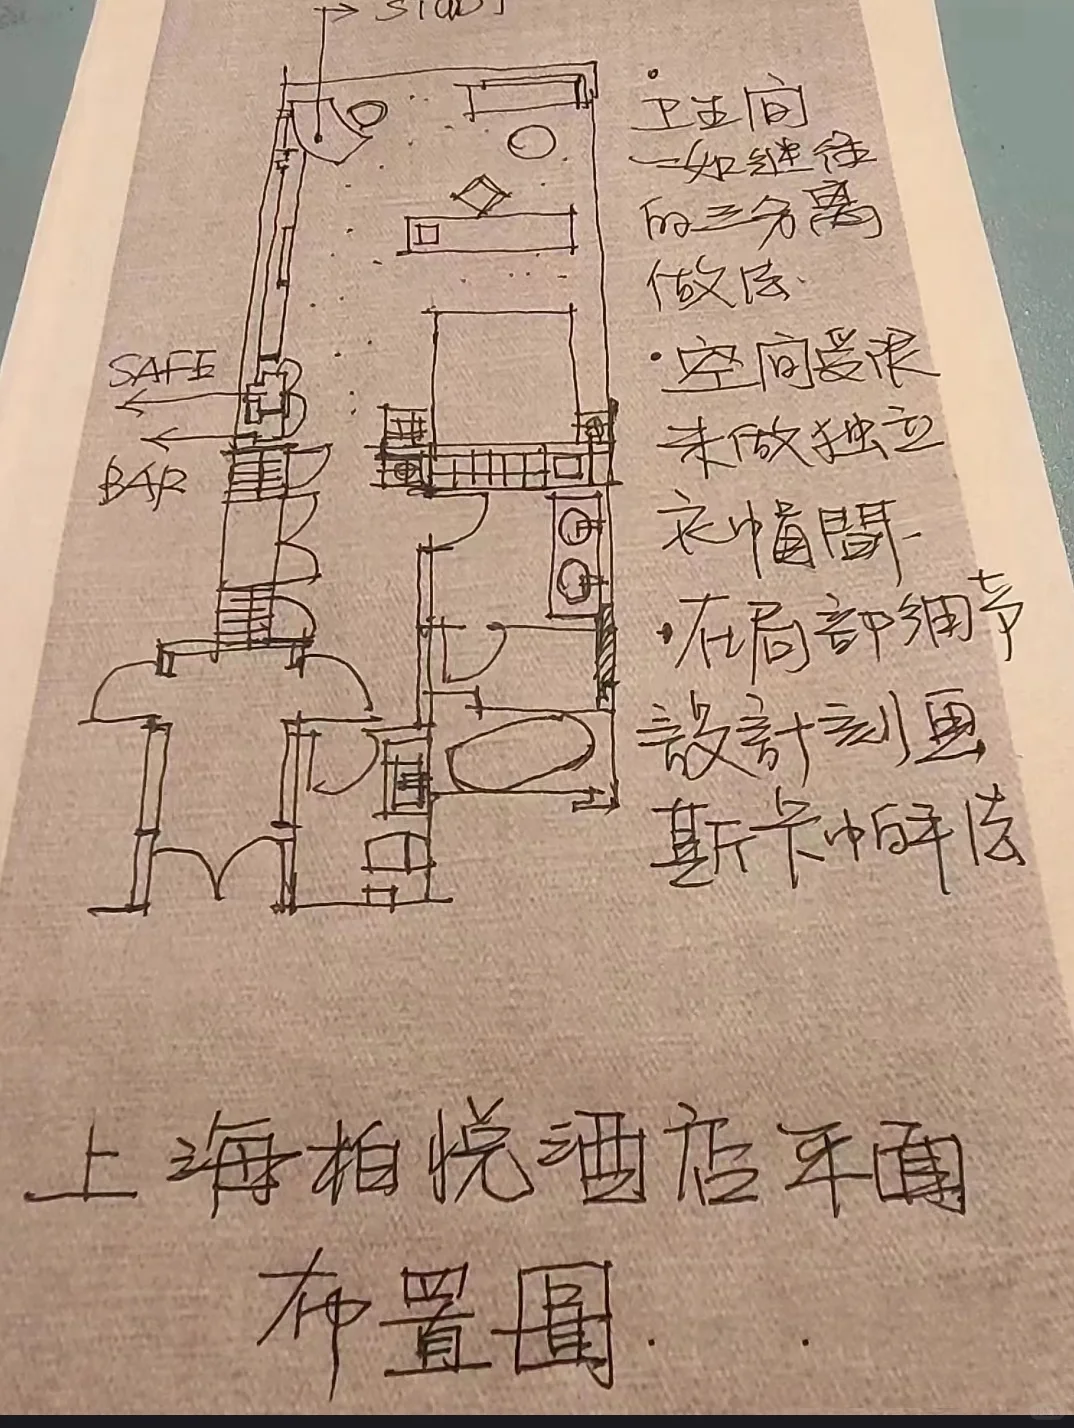 STUDY
卫生间
一如继往
的三分离
做法.
SAFE
• 空间受限
未做独立
BAR
衣帽間.
• 在局部细节
設計刻画
斯卡帕手法
上海柏悦酒店平面
布置圖.